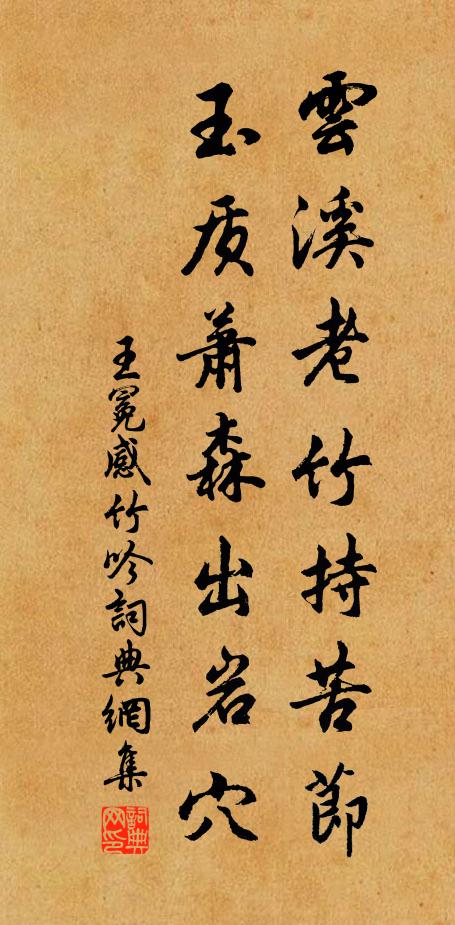 雲溪老竹持苦節
玉质蕭森出岩穴
王冕感竹吟詞典網集
詞典网印